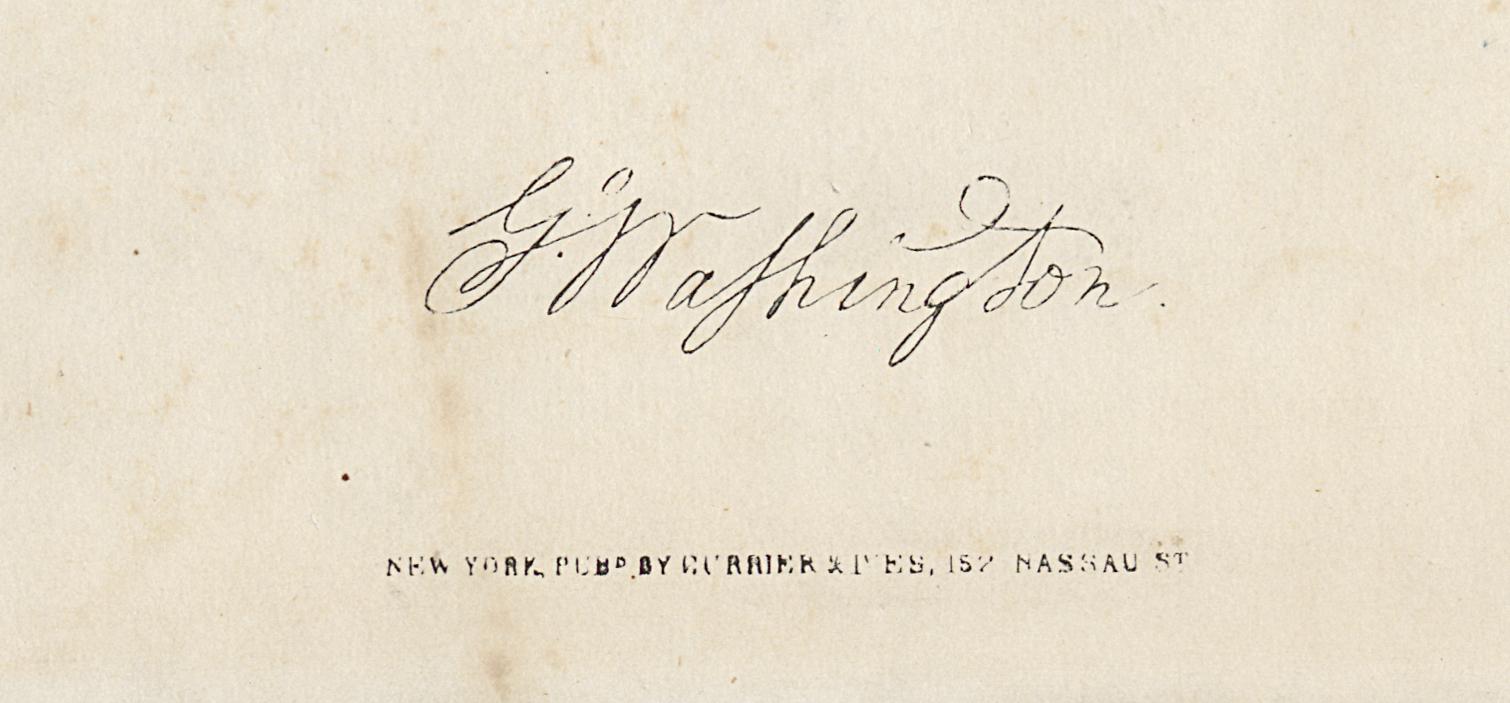 G:Washington.
NEW YORK, PUBD. BY CURRIER & IVES, 152 NASSAU ST